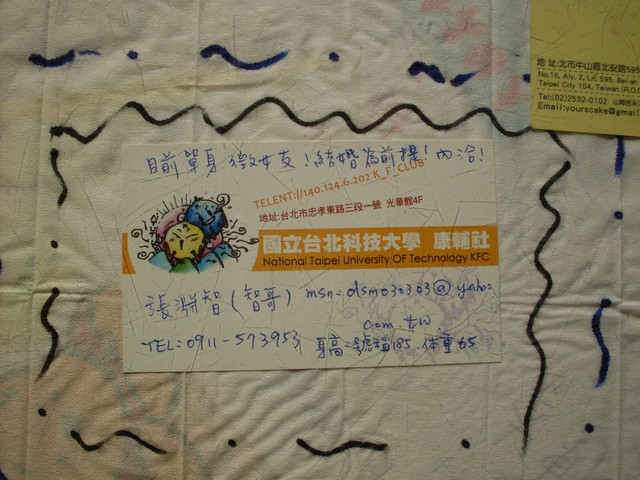 目前單身 徵女友！結婚為前提！內洽！
TELENT://140.124.6.202 K_F_CLUB
地址:台北市忠孝東路三段一號 光華館4F
國立台北科技大學 康輔社
National Taipei University OF Technology KFC
張淵智（智哥） msn:dsm030303@yahoo
com tw
TEL:0911-573953 身高:號稱185 体重65
地 址:北市中山區北安路595
No.16, Alv. 2, Ln. 595, Bei-an
Taipei City 104, Taiwan (R.O.C
Tel:(02)2532-0102
Email:yourscake@gmail